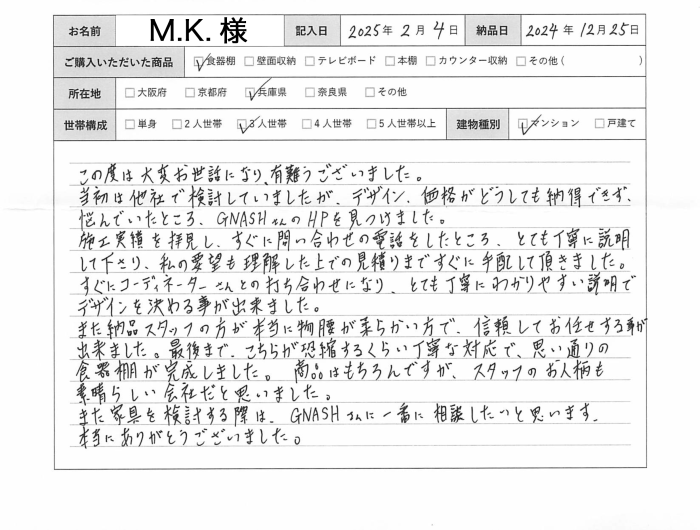 お名前 M.K. 様 記入日 2025年 2月 4日 納品日 2024年 12月 25日
ご購入いただいた商品 ☑食器棚 □壁面収納 □テレビボード □本棚 □カウンター収納 □その他 ( )
所在地 □大阪府 □京都府 ☑兵庫県 □奈良県 □その他
世帯構成 □単身 □2人世帯 ☑3人世帯 □4人世帯 □5人世帯以上 建物種別 ☑マンション □戸建て
この度は大変お世話になり、有難うございました。
当初は他社で検討していましたが、デザイン、価格がどうしても納得できず、
悩んでいたところ、GNASHさんのHPを見つけました。
施工実績を拝見し、すぐに問い合わせの電話をしたところ、とても丁寧に説明
して下さり、私の要望も理解した上での見積りまですぐに手配して頂きました。
すぐにコーディネーターさんとの打ち合わせになり、とても丁寧にわかりやすい説明で
デザインを決める事が出来ました。
また納品スタッフの方が本当に物腰が柔らかい方で、信頼してお任せする事が
出来ました。最後まで、こちらが恐縮するくらい丁寧な対応で、思い通りの
食器棚が完成しました。商品はもちろんですが、スタッフのお人柄も
素晴らしい会社だと思いました。
また家具を検討する際は、GNASHさんに一番に相談したいと思います。
本当にありがとうございました。